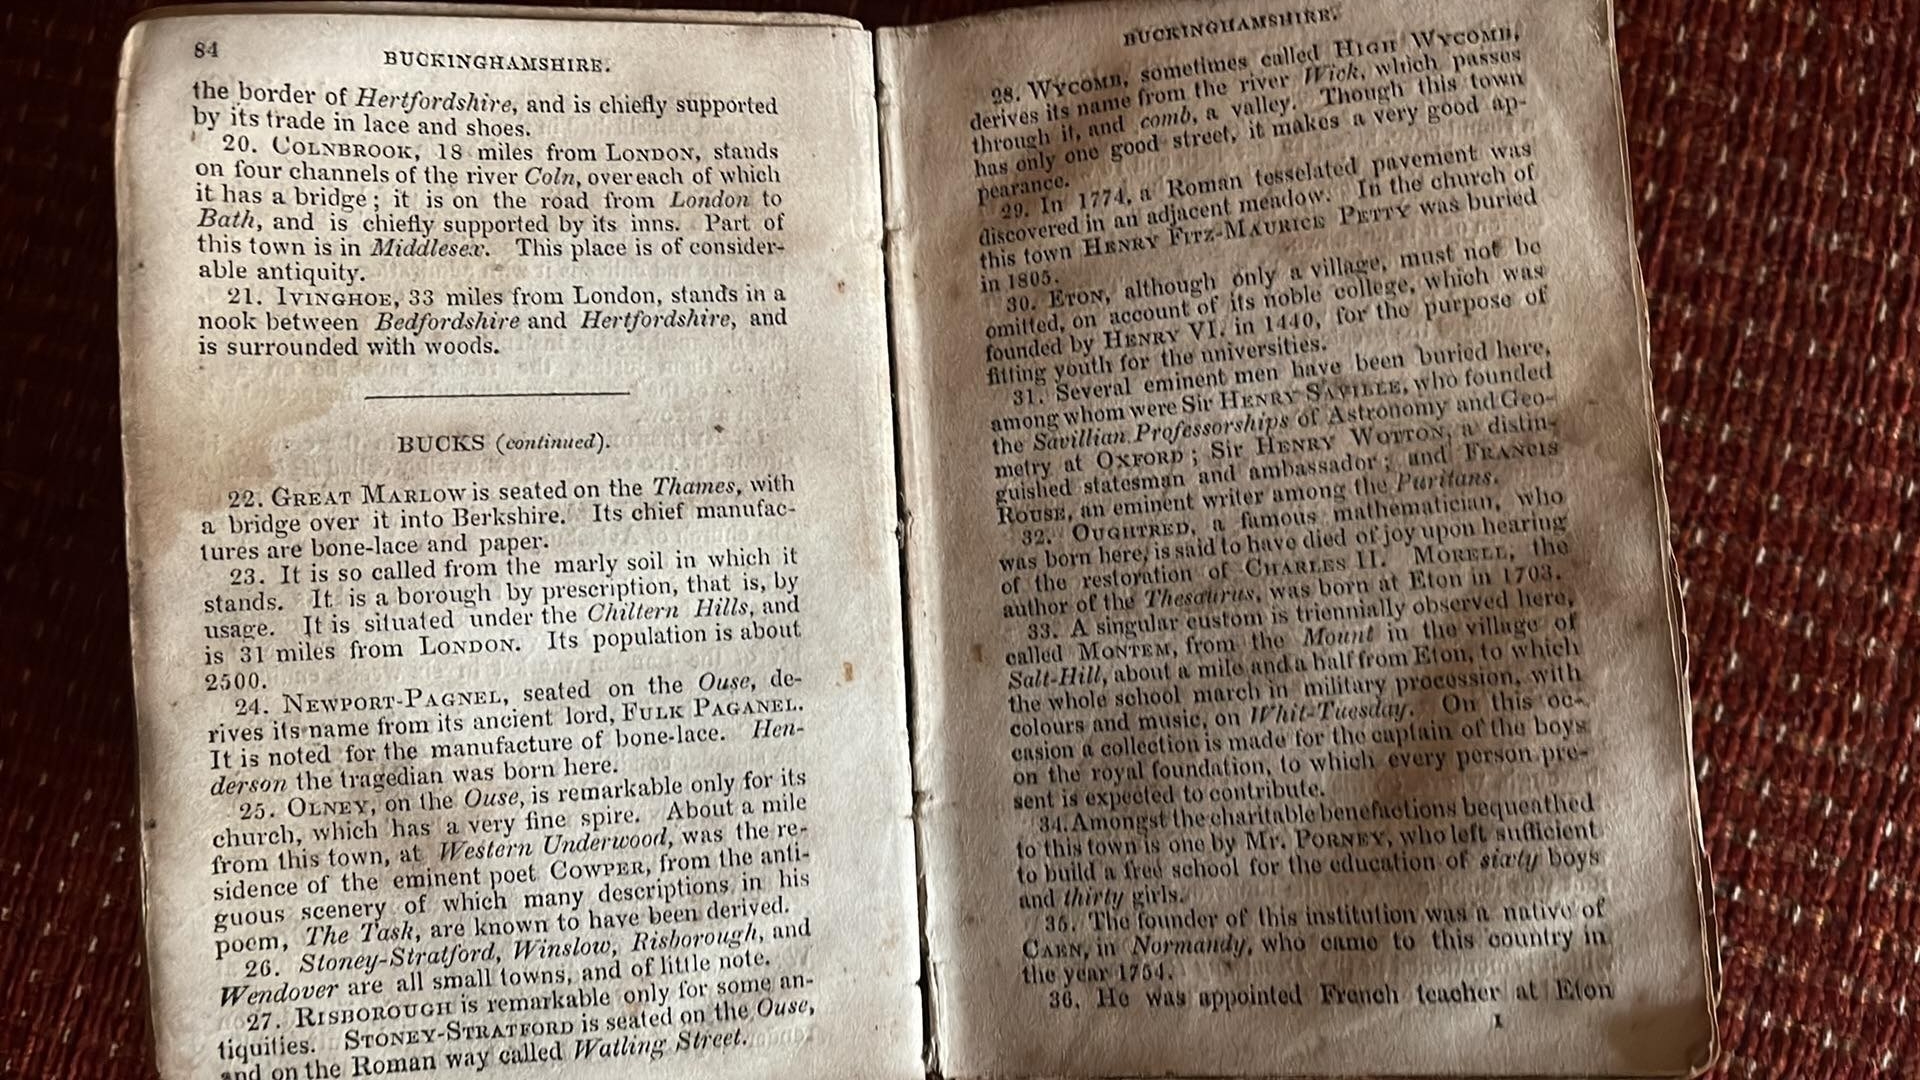 84
BUCKINGHAMSHIRE.
the border of Hertfordshire, and is chiefly supported
by its trade in lace and shoes.
20. COLNBROOK, 18 miles from LONDON, stands
on four channels of the river Coln, over each of which
it has a bridge; it is on the road from London to
Bath, and is chiefly supported by its inns. Part of
this town is in Middlesex. This place is of consider-
able antiquity.
21. IVINGHOE, 33 miles from London, stands in a
nook between Bedfordshire and Hertfordshire, and
is surrounded with woods.
BUCKS (continued).
22. GREAT MARLOW is seated on the Thames, with
a bridge over it into Berkshire. Its chief manufac-
tures are bone-lace and paper.
23. It is so called from the marly soil in which it
stands. It is a borough by prescription, that is, by
usage. It is situated under the Chiltern Hills, and
is 31 miles from LONDON. Its population is about
2500.
24. NEWPORT-PAGNEL, seated on the Ouse, de-
rives its name from its ancient lord, FULK PAGANEL.
It is noted for the manufacture of bone-lace. Hen-
derson the tragedian was born here.
25. OLNEY, on the Ouse, is remarkable only for its
church, which has a very fine spire. About a mile
from this town, at Western Underwood, was the re-
sidence of the eminent poet COWPER, from the anti-
guous scenery of which many descriptions in his
poem, The Task, are known to have been derived.
26. Stoney-Stratford, Winslow, Risborough, and
Wendover are all small towns, and of little note.
27. RISBOROUGH is remarkable only for some an-
tiquities. STONEY-STRATFORD is seated on the Ouse,
and on the Roman way called Watling Street.
BUCKINGHAMSHIRE.
28. WYCOMB, sometimes called HIGH WYCOMB,
derives its name from the river Wick, which passes
through it, and comb, a valley. Though this town
has only one good street, it makes a very good ap-
pearance.
29. In 1774, a Roman tesselated pavement was
discovered in an adjacent meadow. In the church of
this town HENRY FITZ-MAURICE PETTY was buried
in 1805.
30. ETON, although only a village, must not be
omitted, on account of its noble college, which was
founded by HENRY VI. in 1440, for the purpose of
fitting youth for the universities.
31. Several eminent men have been buried here,
among whom were Sir HENRY SAVILLE, who founded
the Savillian Professorships of Astronomy and Geo-
metry at OXFORD; Sir HENRY WOTTON, a distin-
guished statesman and ambassador; and FRANCIS
ROUSE, an eminent writer among the Puritans.
32. OUGHTRED, a famous mathematician, who
was born here, is said to have died of joy upon hearing
of the restoration of CHARLES II. MORELL, the
author of the Thesaurus, was born at Eton in 1703.
33. A singular custom is triennially observed here,
called MONTEM, from the Mount in the village of
Salt-Hill, about a mile and a half from Eton, to which
the whole school march in military procession, with
colours and music, on Whit-Tuesday. On this oc-
casion a collection is made for the captain of the boys
on the royal foundation, to which every person pre-
sent is expected to contribute.
34. Amongst the charitable benefactions bequeathed
to this town is one by Mr. PORNEY, who left sufficient
to build a free school for the education of sixty boys
and thirty girls.
35. The founder of this institution was a native of
CAEN, in Normandy, who came to this country in
the year 1754.
36. He was appointed French teacher at Eton
I